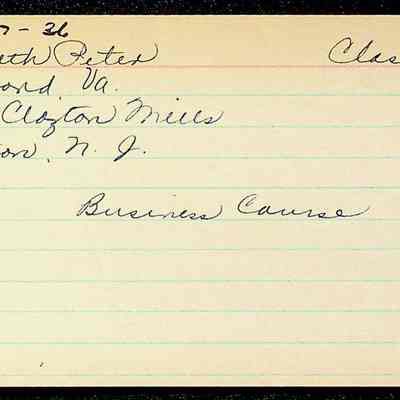 7-36
eth Peter Clas
ond, Va.
Clayton Mills
on, N. J.
Business Course